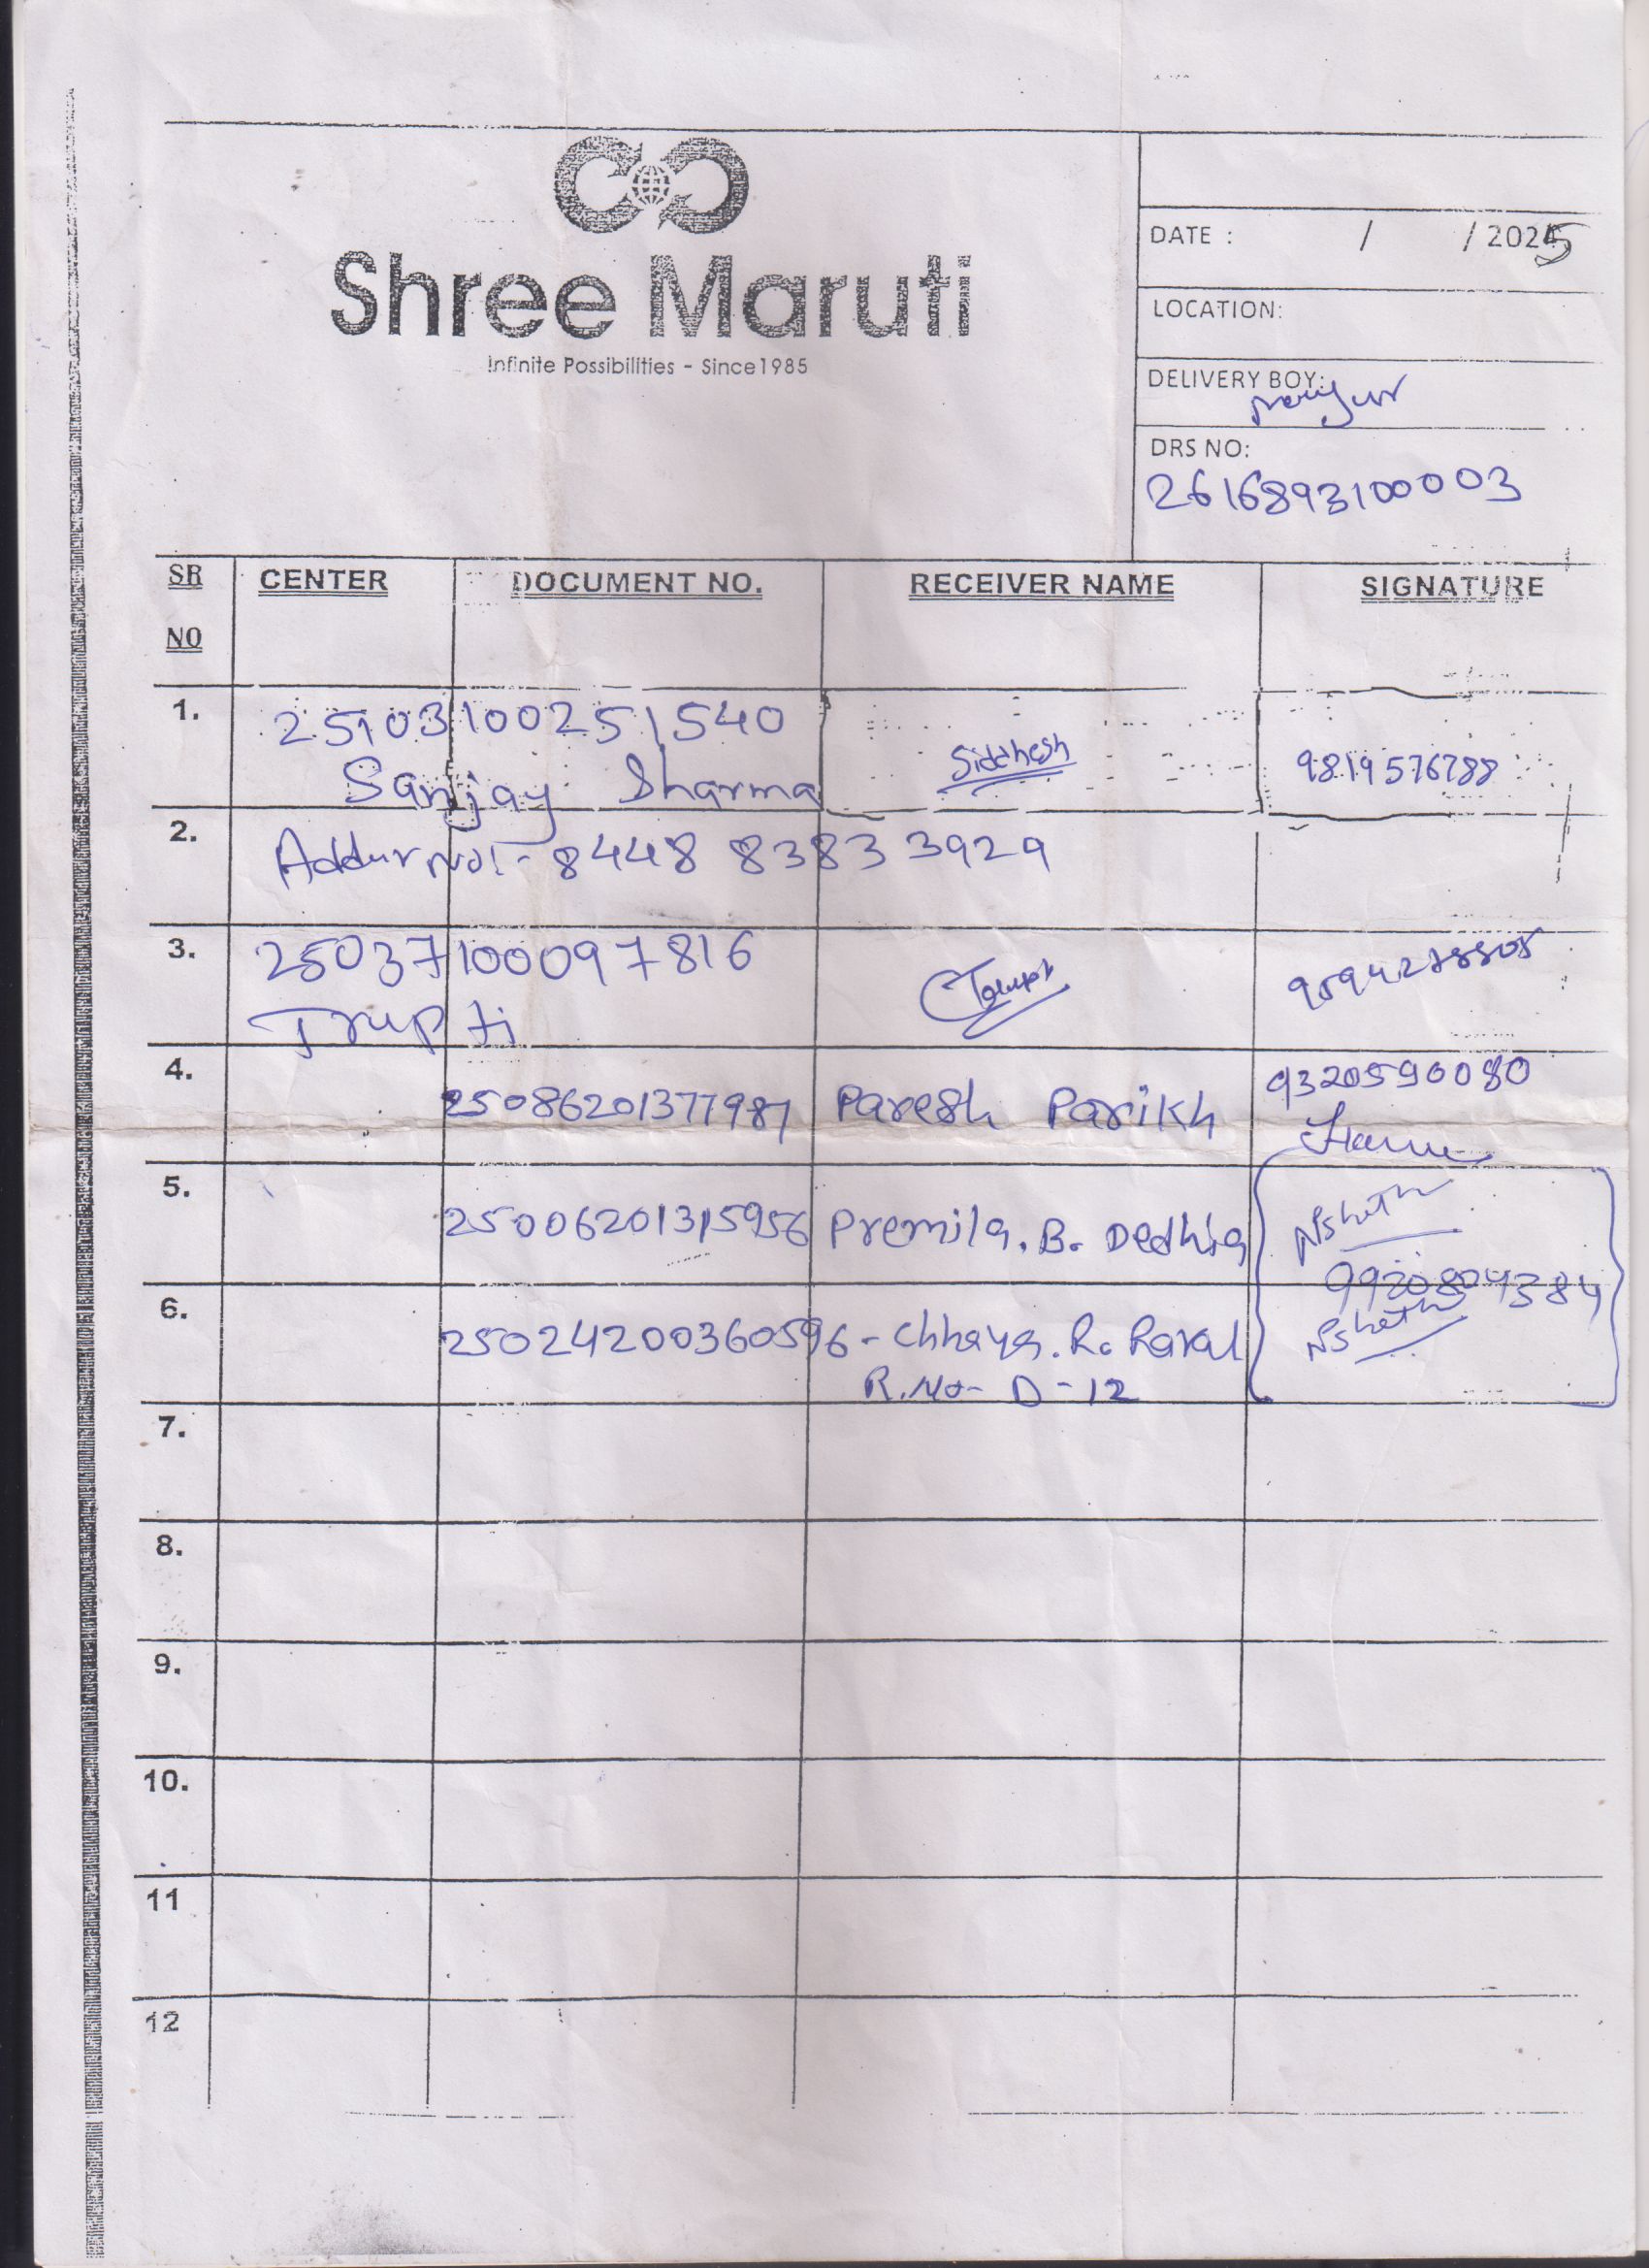 Shree Maruti
Infinite Possibilities - Since1985
DATE : / / 2025
LOCATION:
DELIVERY BOY:
DRS NO:
2616893100003
SR NO CENTER DOCUMENT NO. RECEIVER NAME SIGNATURE
1. 25103100251540 Siddhesh 9819576788
Sanjay Sharma
2. 8448 8383 3929
3. 25037100097816
Trupti
4. 25086201377987 Paresh Parikh 9320590080
5. 25006201315956 Premila. B. Dedhia NSheth
9920804384
6. 25024200360596 - Chhaya. R. Raval NSheth
R.No- D-12
7.
8.
9.
10.
11
12